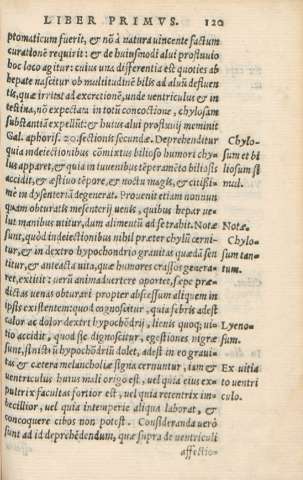 LIBER PRIMVS. 120
ptomaticum fuerit, & nõ à natura uincente factum
curationẽ requirit: & de huiusmodi alui profluuio
hoc loco agitur: cuius una differentia est quoties ab
hepate nascitur ob multitudinẽ bilis ad aluũ defluen
tis, quæ irritat ad excretionẽ, unde uentriculus & in
testina, nõ expectata in totũ concoctione, chylosam
substantiã expellũt: & huius alui profluuij meminit
Gal. aphoris. 20. sectionis secundæ. Deprehenditur
quia in deiectionibus cõmixtus bilioso humori chy-
lus apparet, & quia in iuuenibus tẽperamẽto biliosis
accidit, & æstiuo tẽpore, & noctu magis, & citißi-
mè in dysenteriã degenerat. Prouenit etiam nonnun
quam obturatis mesenterij uenis, quibus hepar ue-
lut manibus utitur, dum alimentũ ad se trahit. Notæ
sunt, quòd in deiectionibus nihil præter chylũ cerni-
tur, & in dextro hypochondrio grauitas quædã sen
titur, & anteacta uita, quæ humores crassos genera-
ret, extitit: uerũ animaduertere oportet, sæpe præ-
dictas uenas obturari propter abscessum aliquem in
ipsis existentem: quod cognoscitur, quia febris adest
calor ac dolor dextri hypochõdrij, lienis quoq; ui-
tio accidit, quod sic dignoscitur, egestiones nigræ
sunt, sinistrũ hypochõdriũ dolet, adest in eo graui-
tas & cætera melancholiæ signa cernuntur, iam &
uentriculus huius mali origo est, uel quia eius ex-
pultrix facultas fortior est, uel quia retentrix im-
becillior, uel quia intemperie aliqua laborat, &
concoquere cibos non potest. Consideranda uerò
sunt ad id deprehẽdendum, quæ supra de uentriculi
affectio-
Chylo-
sum et bi
liosum si
mul.
Notæ.
Chylo-
sum tan-
tum.
Lyeno-
sum.
Ex uitio
uentri
culo.